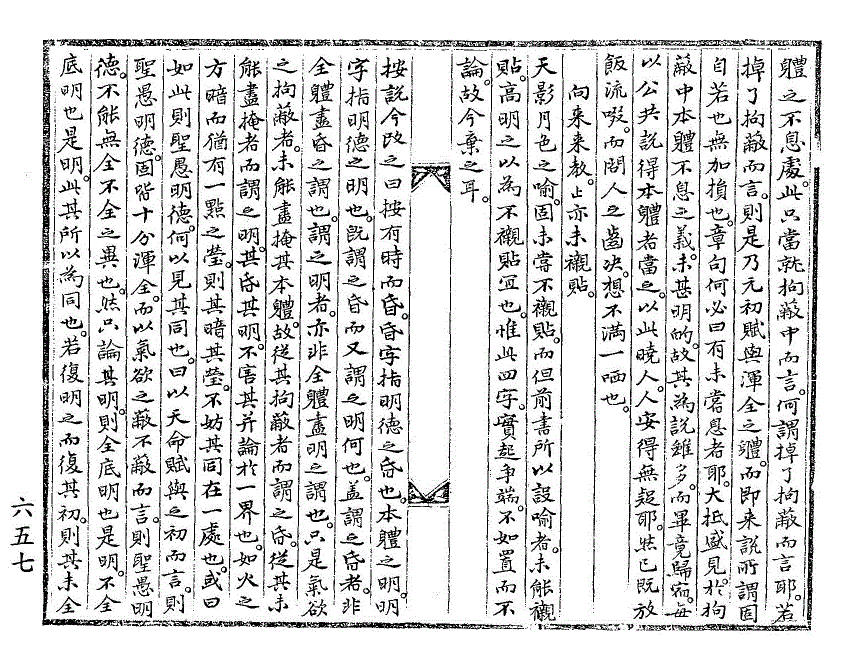 體之不息處。此只當就拘蔽中而言。何謂掉了拘蔽而言耶。若
掉了拘蔽而言。則是乃元初賦與渾全之體。而即来說所謂固
自若也。無加損也。章句何必曰有未嘗息者耶。大抵盛見。於拘
蔽中本體不息之義。未甚明的。故其為說雖多。而畢竟歸宿。每
以公共說得本體者當之。以此曉人。人安得無疑耶。然已既放
飯流歠。而問人之齒决。想不滿一哂也。
向来来教。止亦未襯貼。
天影月色之喻。固未嘗不襯貼。而但前書所以設喻者。未能襯
貼。高明之以為不襯貼宜也。惟此四字。實起爭端。不如置而不
論。故今棄之耳。
按說今改之曰按有時而昏。昏字指明德之昏也。本體之明。明
字指明德之明也。旣謂之昏而又謂之明何也。盖謂之昏者。非
全體盡昏之謂也。謂之明者。亦非全體盡明之謂也。只是氣欲
之拘蔽者。未能盡掩其本體。故從其拘蔽者而謂之昏。從其未
能盡掩者而謂之明。其昏其明。不害其并論於一界也。如火之
方暗而猶有一點之瑩。則其暗其瑩。不妨其同在一處也。或曰
如此則聖愚明德。何以見其同也。曰以天命賦與之初而言。則
聖愚明德。固皆十分渾全。而以氣欲之蔽不蔽而言。則聖愚明
德。不能無全不全之異也。然只論其明。則全底明也是明。不全
底明也是明。此其所以為同也。若復明之而復其初。則其未全
六五七